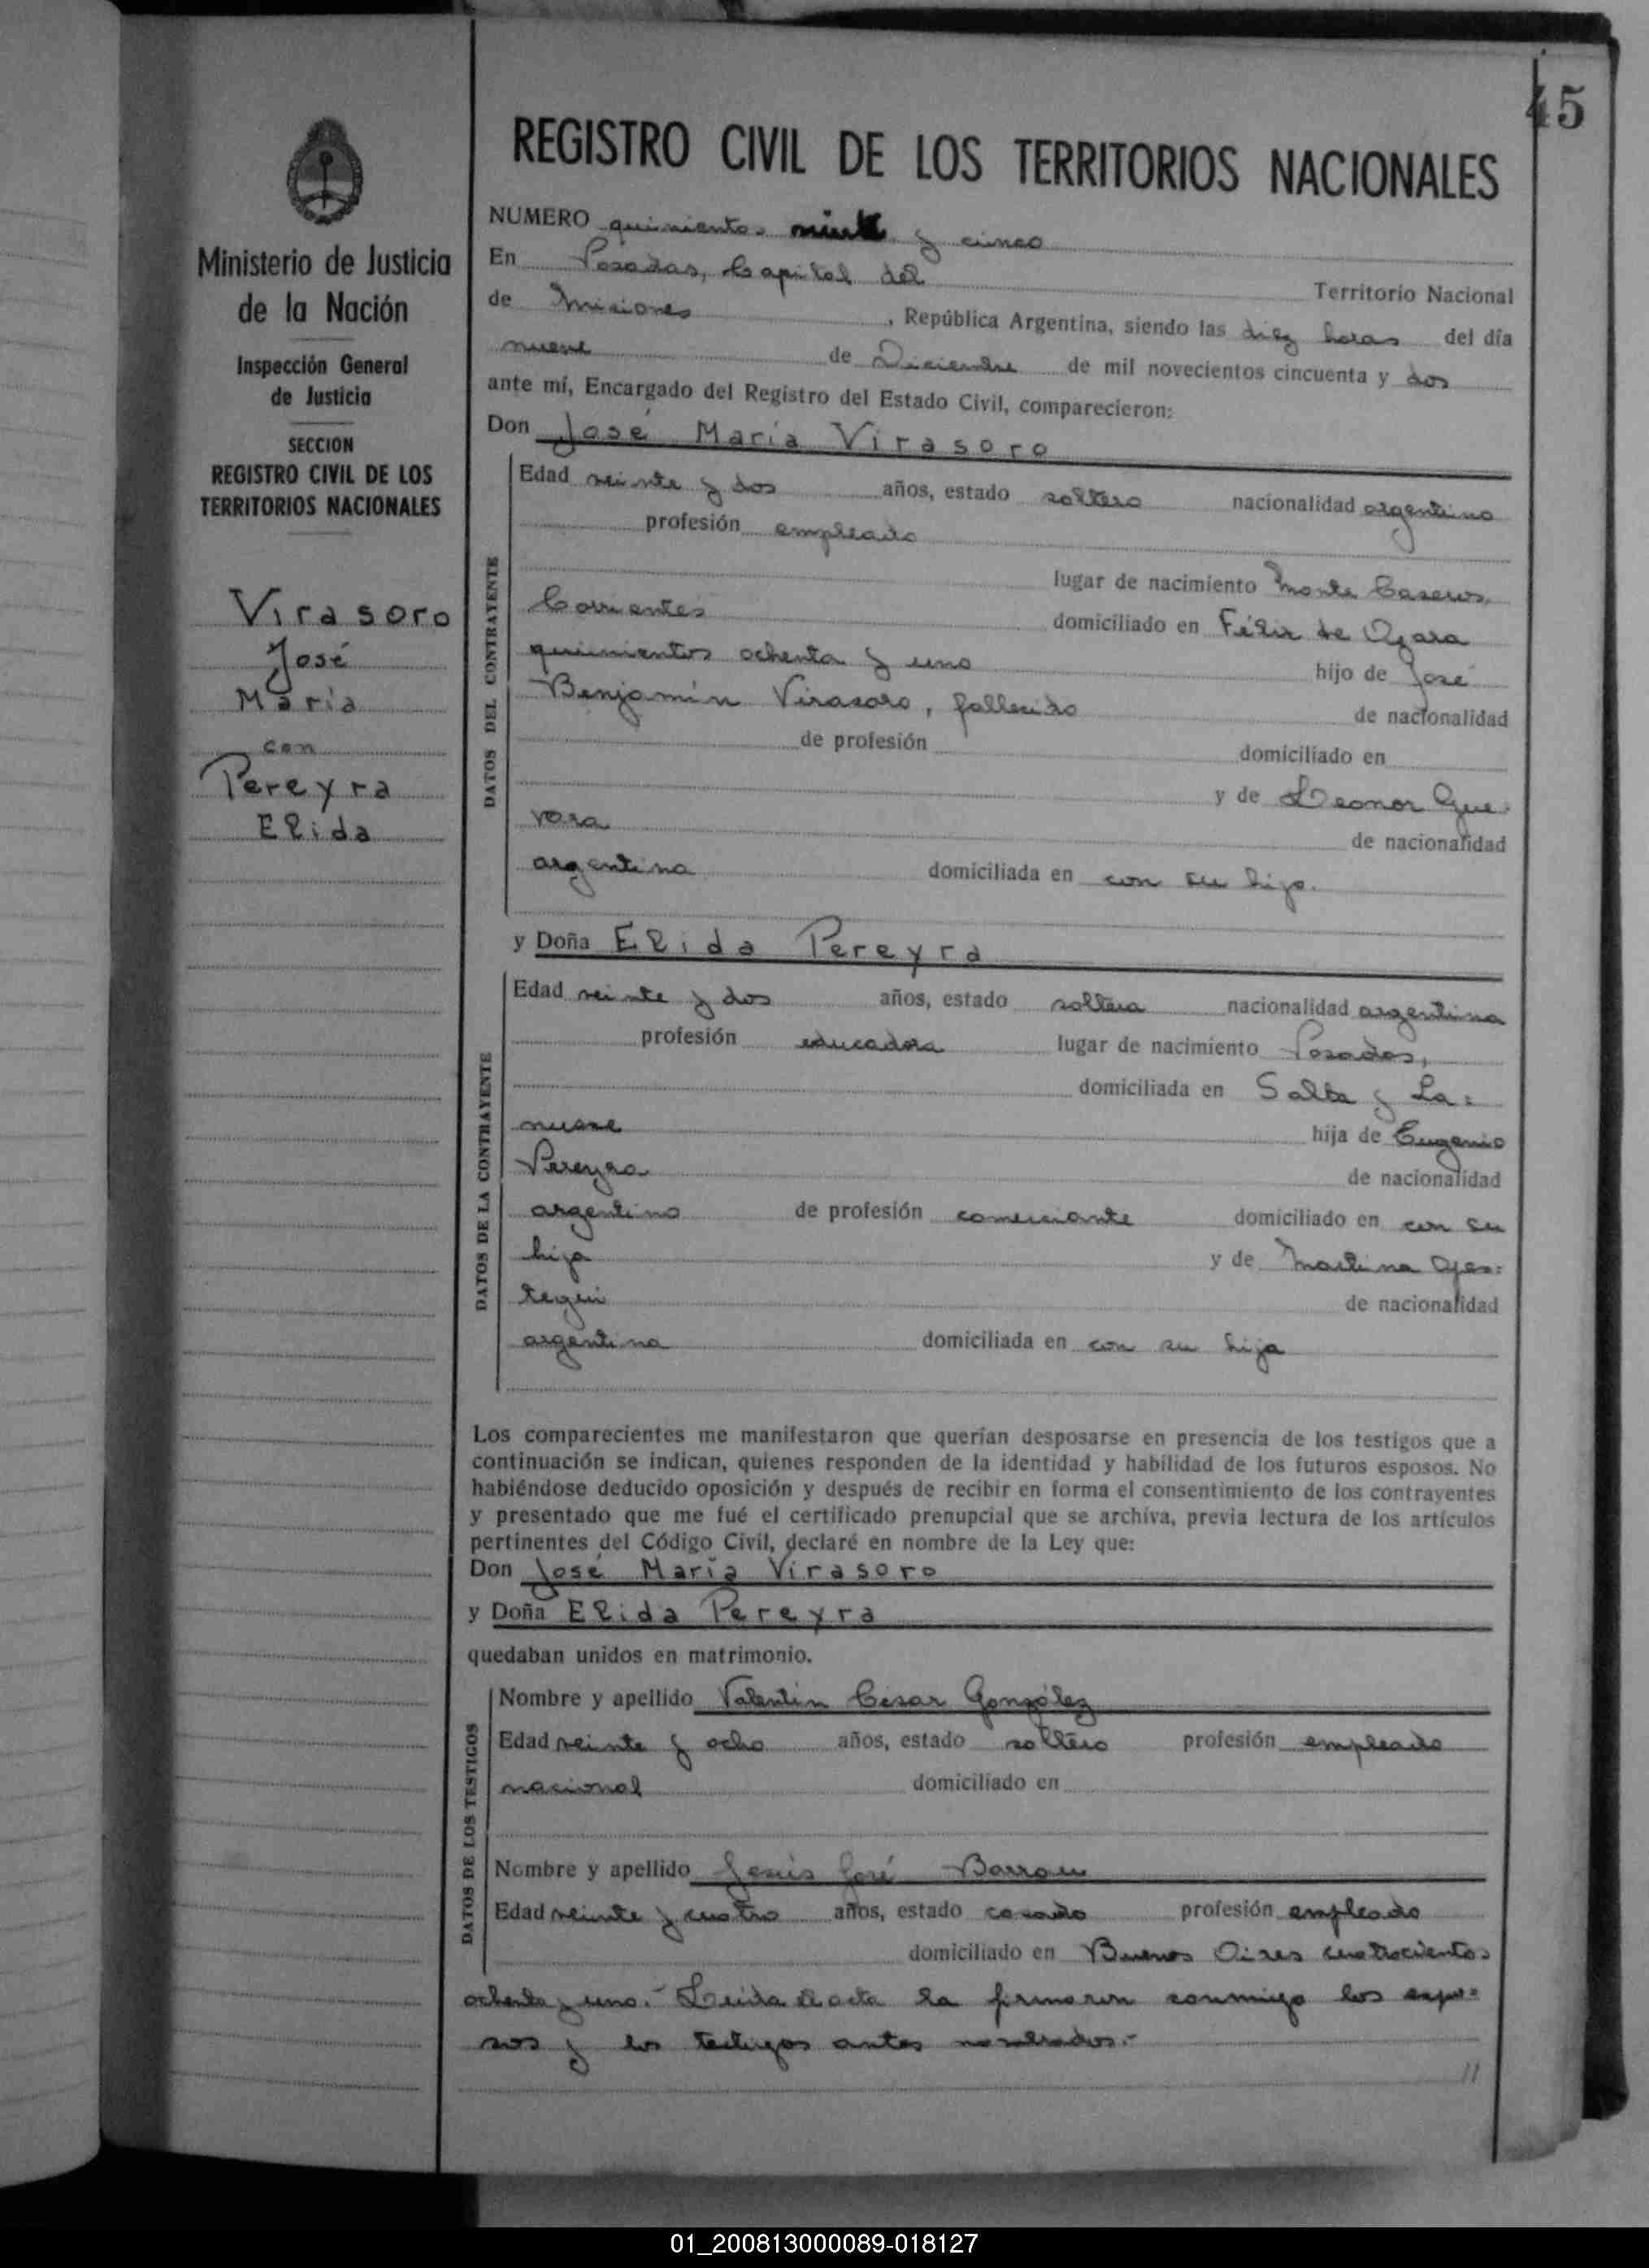 45
REGISTRO CIVIL DE LOS TERRITORIOS NACIONALES
Ministerio de Justicia
de la Nación
Inspección General
de Justicia
SECCION
REGISTRO CIVIL DE LOS
TERRITORIOS NACIONALES
Virasoro
José
María
con
Pereyra
Elida
NUMERO quinientos y cinco
En Posadas, Capital del Territorio Nacional
de Misiones, República Argentina, siendo las diez horas del día
nueve de Diciembre de mil novecientos cincuenta y dos
ante mí, Encargado del Registro del Estado Civil, comparecieron:
Don José María Virasoro
DATOS DEL CONTRAYENTE
Edad veinte y dos años, estado soltero nacionalidad argentino
profesión empleado
lugar de nacimiento Monte Caseros,
Corrientes domiciliado en Félix de Azara
quinientos ochenta y uno hijo de José
Benjamín Virasoro, fallecido de nacionalidad
de profesión domiciliado en
y de Leonor Gue-
vara de nacionalidad
argentina domiciliada en con su hijo.
y Doña Elida Pereyra
DATOS DE LA CONTRAYENTE
Edad veinte y dos años, estado soltera nacionalidad argentina
profesión educadora lugar de nacimiento Posadas,
domiciliada en Salta y La=
nuse hija de Eugenio
Pereyra de nacionalidad
argentino de profesión comerciante domiciliado en con su
hija y de Martina
de nacionalidad
argentina domiciliada en con su hija
Los comparecientes me manifestaron que querían desposarse en presencia de los testigos que a
continuación se indican, quienes responden de la identidad y habilidad de los futuros esposos. No
habiéndose deducido oposición y después de recibir en forma el consentimiento de los contrayentes
y presentado que me fué el certificado prenupcial que se archiva, previa lectura de los artículos
pertinentes del Código Civil, declaré en nombre de la Ley que:
Don José María Virasoro
y Doña Elida Pereyra
quedaban unidos en matrimonio.
DATOS DE LOS TESTIGOS
Nombre y apellido Valentín César González
Edad veinte y ocho años, estado soltero profesión empleado
nacional domiciliado en
Nombre y apellido Jesús José
Edad veinte y cuatro años, estado casado profesión empleado
domiciliado en Buenos Aires cuatrocientos
ochenta y uno.- Leída el acta la firmaron conmigo los espo=
sos y los testigos antes nombrados.-
//
01_200813000089-018127